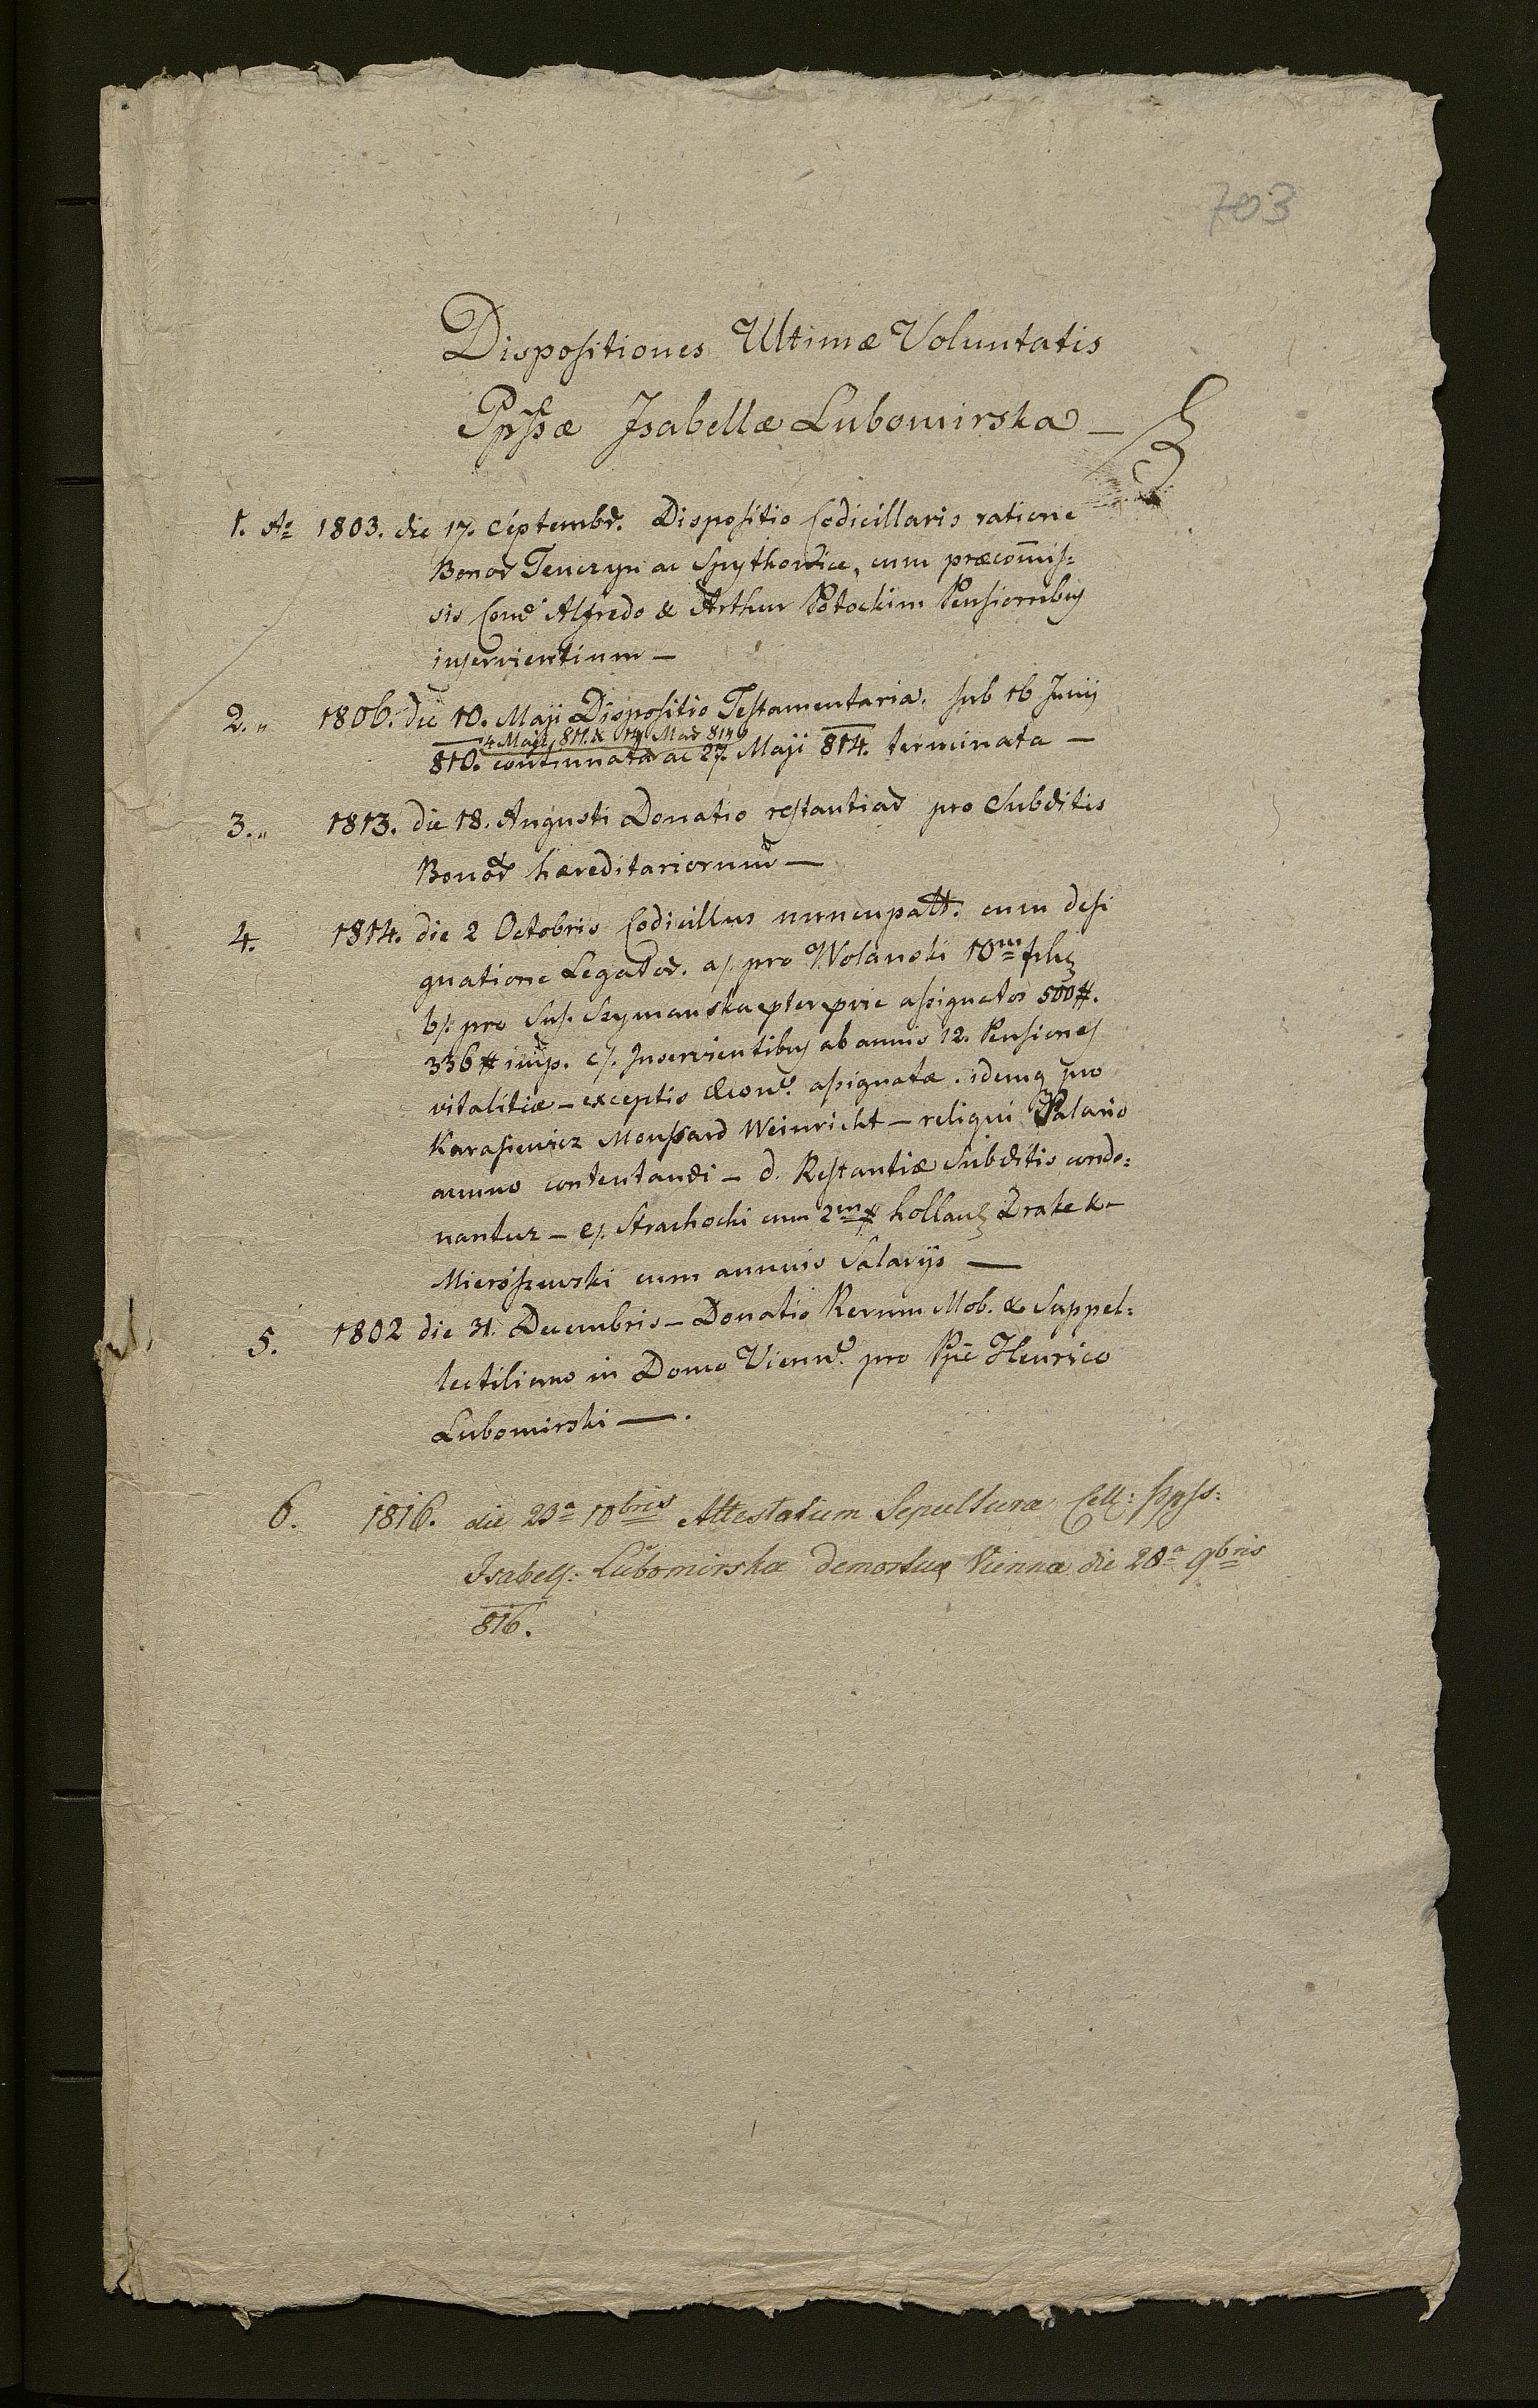 703
Dispositiones Ultimæ Voluntatis
Ppssæ Isabellæ Lubomirska —
1. Ao 1803. die 17. Septembr. Dispositio Codicillaris ratione
Bonor Tenczyn ac Spythovice, cum præcom̄is=
sis Com̄ Alfredo & Arthur Potockim Pensionibus
inservientium —
2. " 1806. die 10. Maji Dispositio Testamentaria. sub 16 Junij
4 Maji 811. &
810. continuata ac 27. Maji 814. terminata —
3. " 1813. die 18. Augusti Donatio restantiar pro Subditis
Bonor hæreditariorum —
4. 1814. die 2 Octobris Codicillus nuncupatt. cum desi
gnatione Legator. a/. pro Wolanski 10m
b/. pro Szymanska assignatos 500#.
336# imp. c/. Inservientibus ab annis 12. Pensiones
vitalitiæ — exceptis assignatæ. idemq pro
Karasiewicz Moussard Weinricht — reliqui Salario
annuo contentandi — d. Restantiæ Subditis condo=
nantur — e/. Strachocki cum 2m# holland Drake &
Mieroszewski cum annuis Salarijs —
5. 1802 die 31. Decembris — Donatio Rerum Mob. & Suppel=
lectilium in Domo Vienn. pro Ppē Henrico
Lubomirski —.
6. 1816. die 23a 10bris Attestatum Sepulturæ Cell: Ppss:
Isabell: Lubomirska demortuæ Viennæ die 28a 9bris
816.